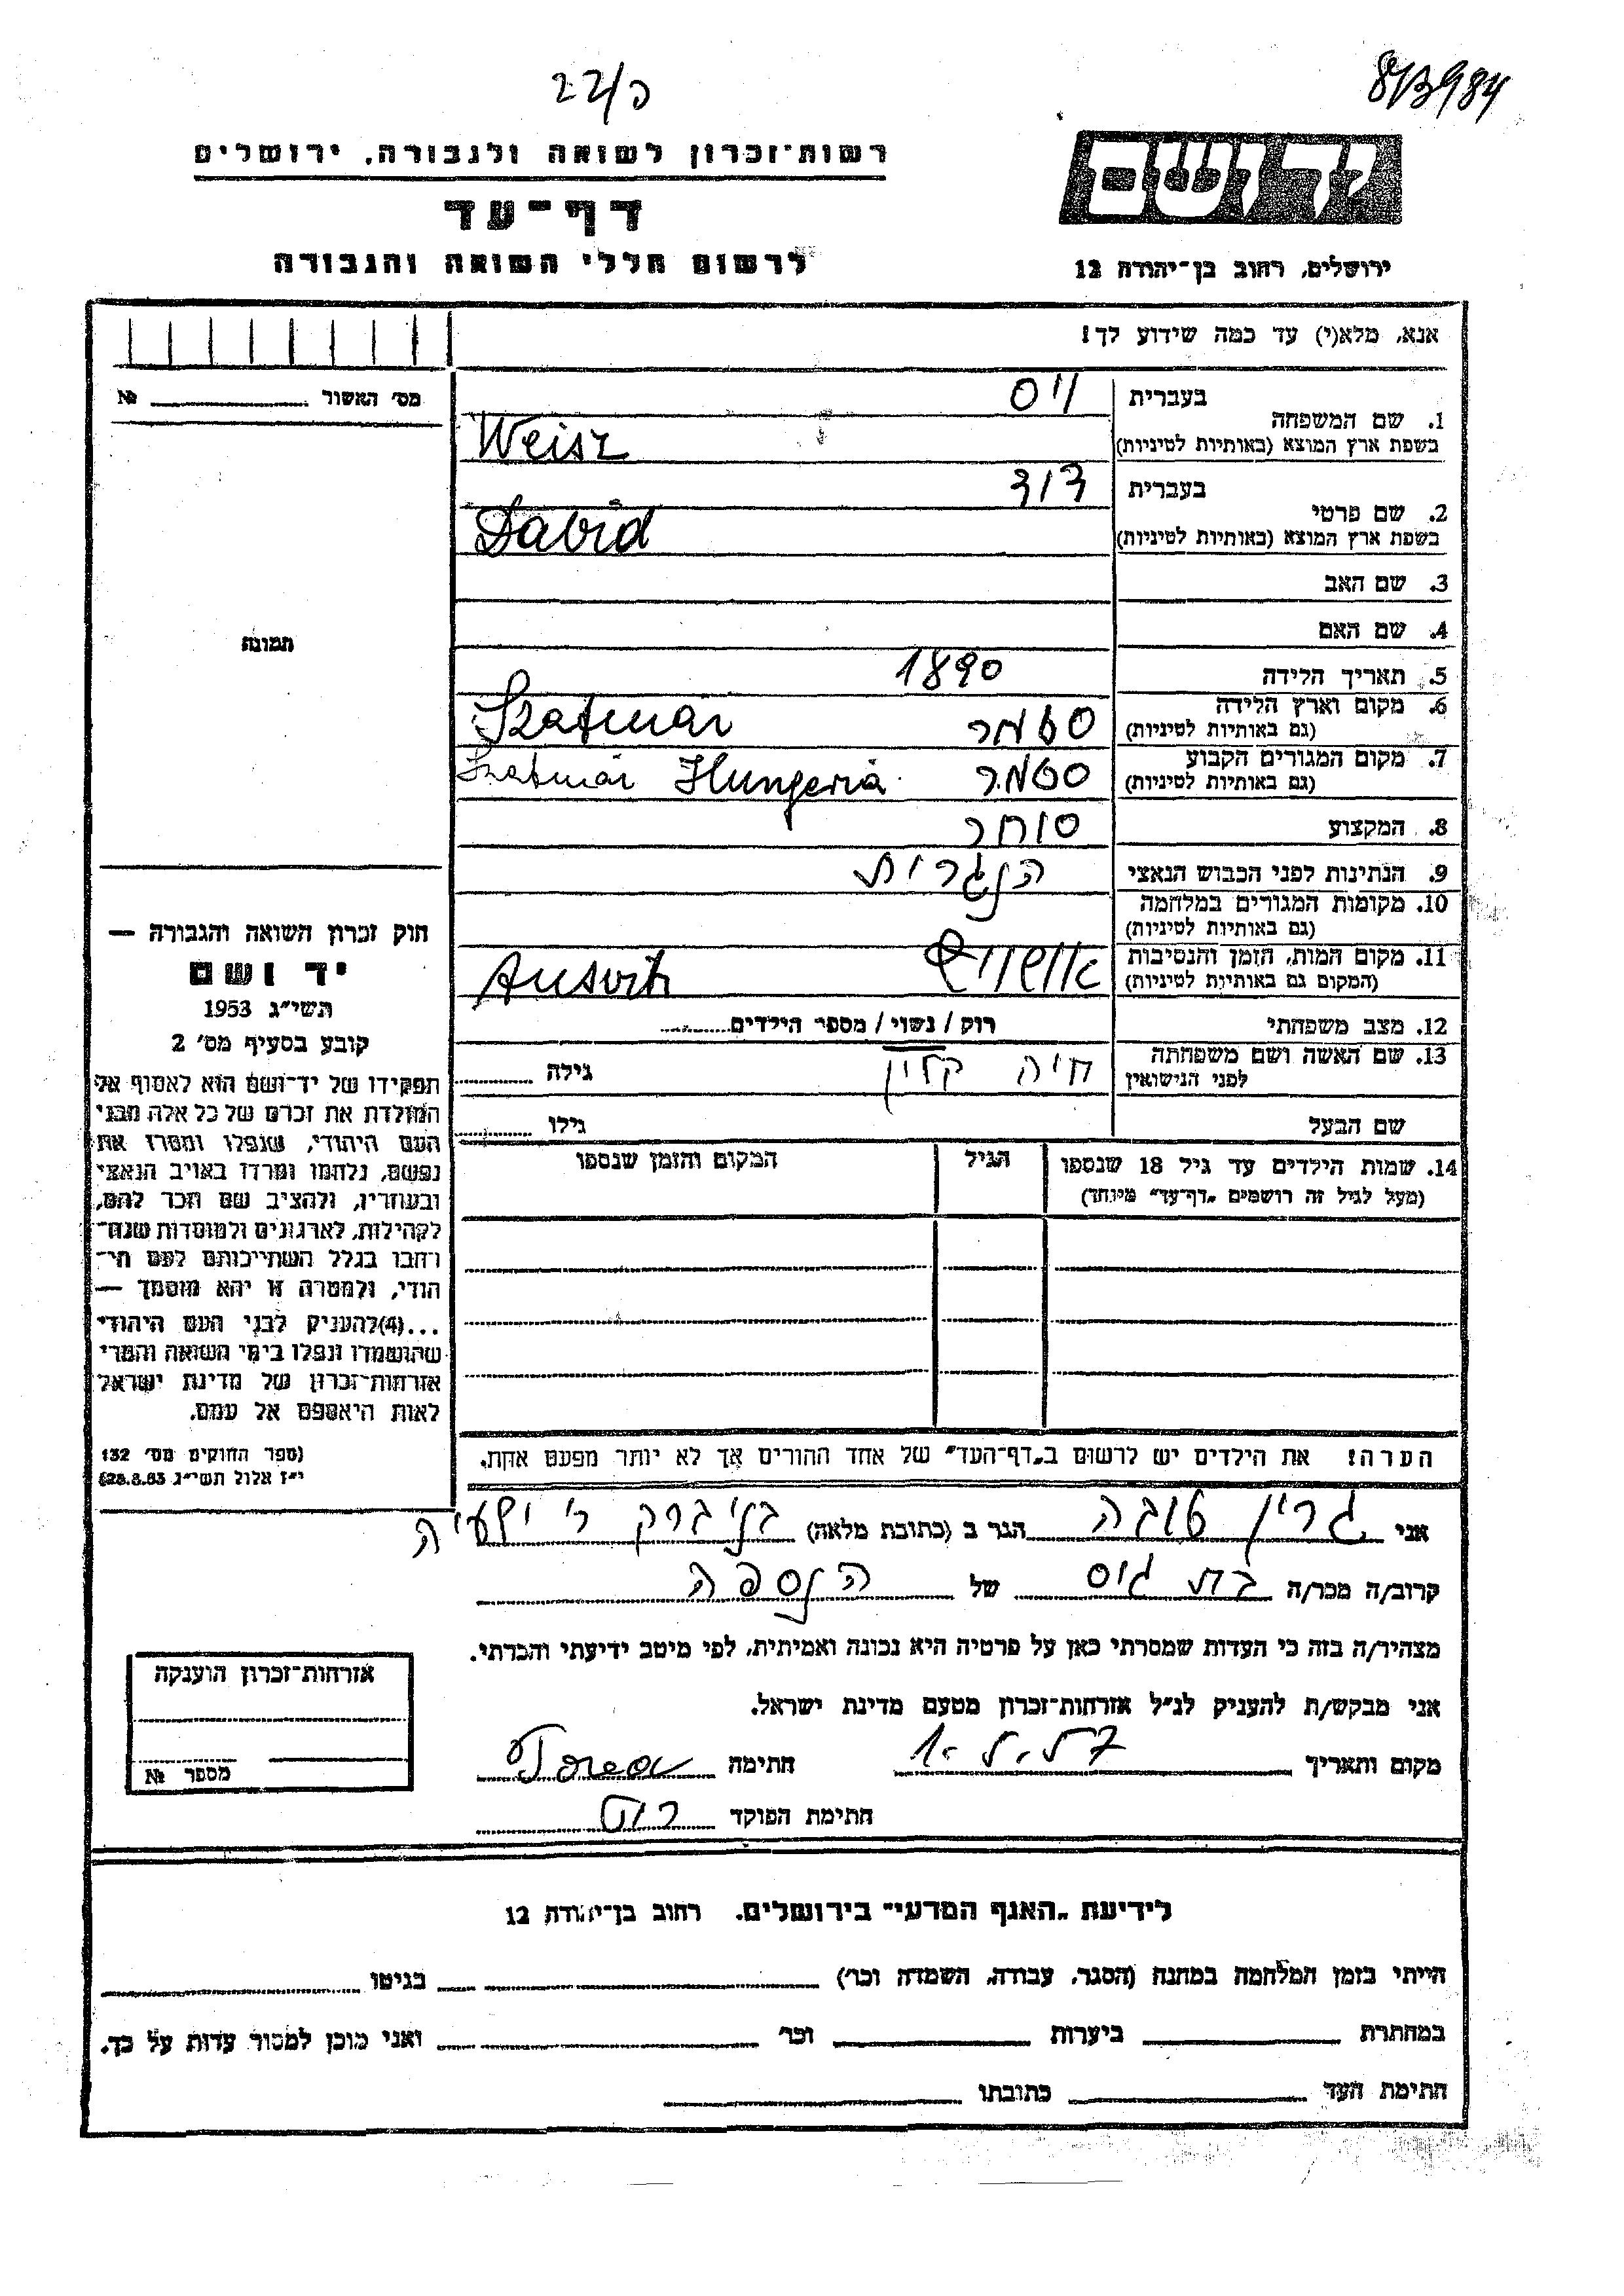 22/כ
8/3984
רשות-זכרון לשואה ולגבורה, ירושלים
יד ושם
דף-עד
לרשום חללי השואה והגבורה
ירושלים, רחוב בן-יהודה 12
אנא, מלא(י) עד כמה שידוע לך!
מס' האשור № 
1. שם המשפחה בעברית וייס
בשפת ארץ המוצא (באותיות לטיניות) Weisz
2. שם פרטי בעברית דוד
בשפת ארץ המוצא (באותיות לטיניות) David
3. שם האב
4. שם האם
תמונה
5. תאריך הלידה 1890
6. מקום וארץ הלידה (גם באותיות לטיניות) סטמר Szatmár
7. מקום המגורים הקבוע (גם באותיות לטיניות) סטמר Szatmár Hungeria
8. המקצוע סוחר
9. הנתינות לפני הכבוש הנאצי הונגרית
10. מקומות המגורים במלחמה (גם באותיות לטיניות)
11. מקום המות, הזמן והנסיבות (המקום גם באותיות לטיניות) אושוויץ Ausvitz
12. מצב משפחתי רוק / נשוי / מספר הילדים
13. שם האשה ושם משפחתה לפני הנישואין חיה קליין גילה
שם הבעל גילו
14. שמות הילדים עד גיל 18 שנספו הגיל המקום והזמן שנספו
(מעל לגיל זה רושמים "דף-עד" מיוחד)
הערה! את הילדים יש לרשום ב"דף-העד" של אחד ההורים אך לא יותר מפעם אחת.
חוק זכרון השואה והגבורה —
יד ושם
תשי"ג 1953
קובע בסעיף מס' 2
תפקידו של יד-ושם הוא לאסוף אל
המולדת את זכרם של כל אלה מבני
העם היהודי, שנפלו ומסרו את
נפשם, נלחמו ומרדו באויב הנאצי
ובעוזריו, ולהציב שם וזכר להם,
לקהילות, לארגונים ולמוסדות שנח-
רבו בגלל השתייכותם לעם הי-
הודי, ולמטרה זו יהא מוסמך —
...(4) להעניק לבני העם היהודי
שהושמדו ונפלו בימי השואה והמרי
אזרחות-זכרון של מדינת ישראל
לאות היאספם אל עמם.
(ספר החוקים מס' 132
י"ז אלול תשי"ג 28.8.53)
אני גרין טובה הגר ב (כתובת מלאה) בני ברק ר' ישעיה
קרוב/ה מכר/ה בת גיס של הנספה
מצהיר/ה בזה כי העדות שמסרתי כאן על פרטיה היא נכונה ואמיתית, לפי מיטב ידיעתי והכרתי.
אני מבקש/ת להעניק לנ"ל אזרחות-זכרון מטעם מדינת ישראל.
מקום ותאריך חתימה
חתימת הפוקד
אזרחות-זכרון הוענקה
מספר №
לידיעת "האגף המדעי" בירושלים. רחוב בן-יהודה 12
הייתי בזמן המלחמה במחנה (הסגר, עבודה, השמדה וכר') בגיטו
במחתרת ביערות וכר' ואני מוכן למסור עדות על כך.
חתימת העד כתובתו